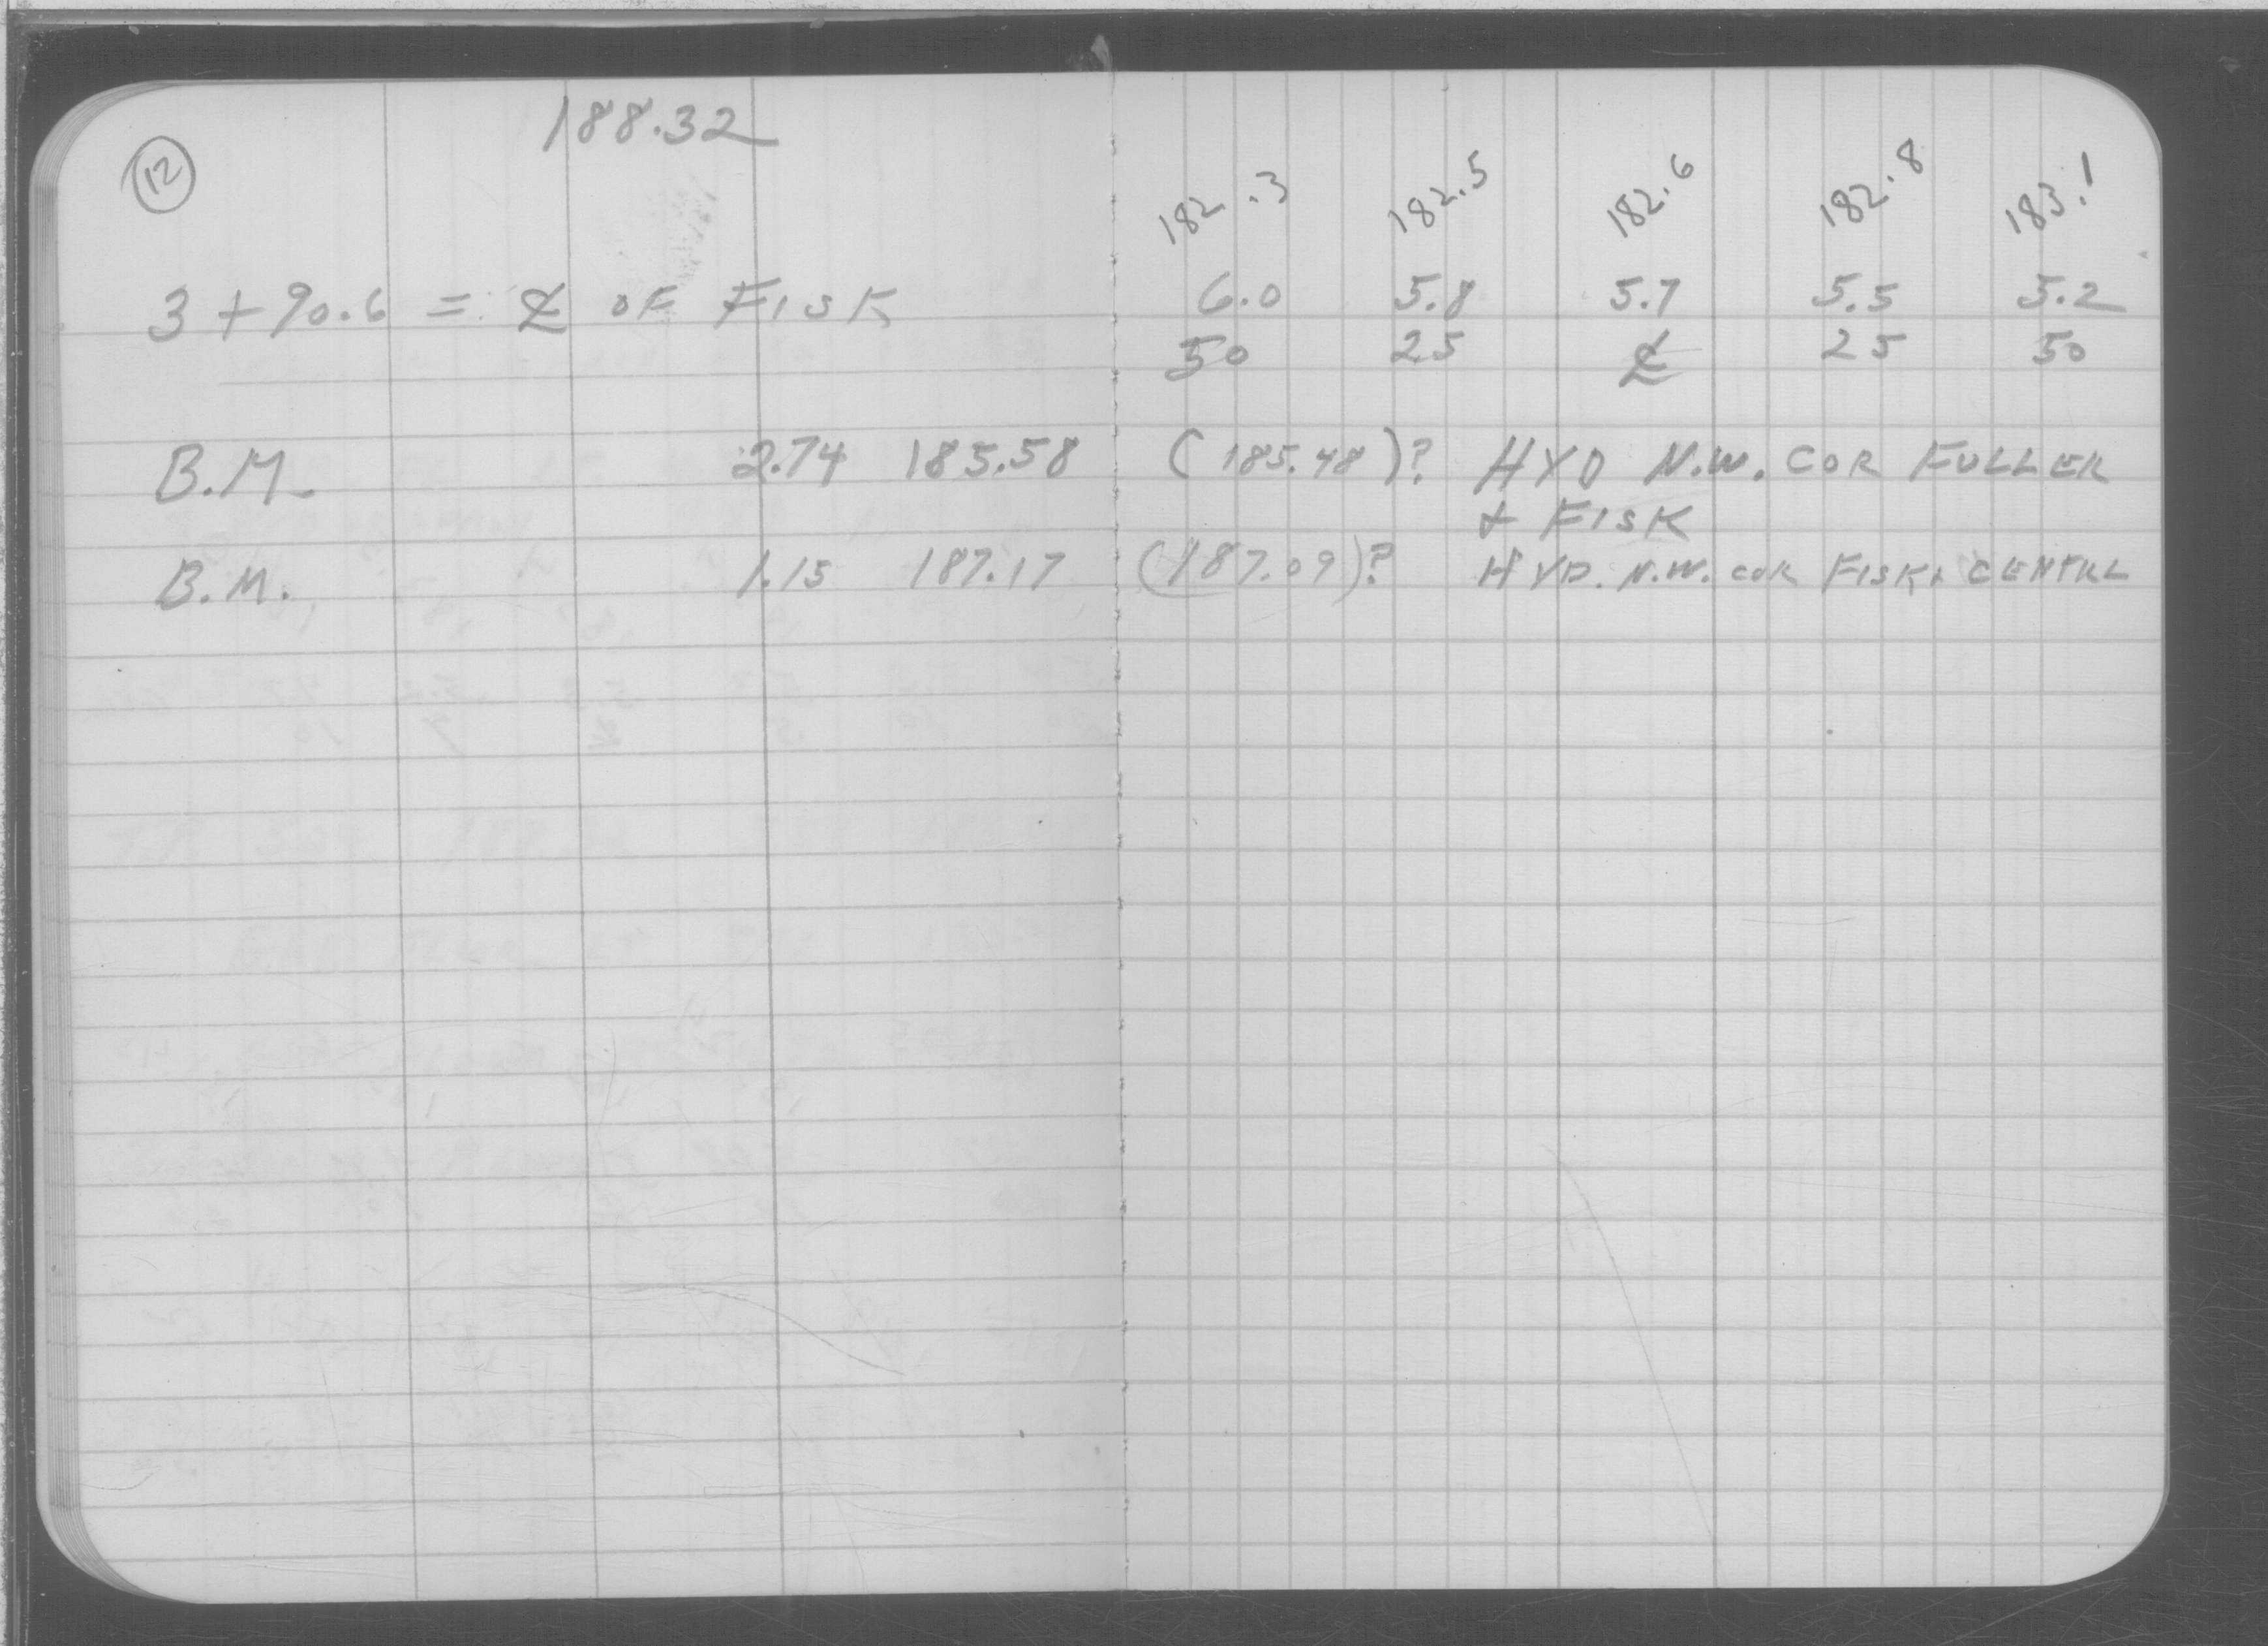 188.32
12
182.3 182.5 182.6 182.8 183.1
3+90.6 = ℄ OF FISK 6.0 5.8 5.7 5.5 5.2
50 25 ℄ 25 50
B.M. 2.74 185.58 (185.48)? HYD N.W. COR FULLER
+ FISK
B.M. 1.15 187.17 (187.09)? HYD. N.W. COR FISK + CENTRL